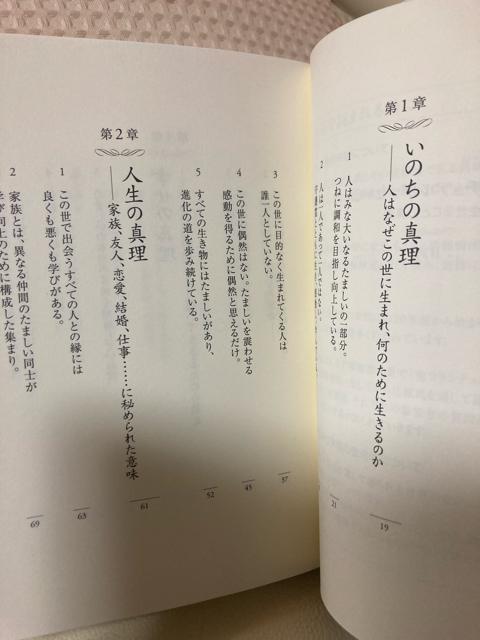 第1章
いのちの真理
――人はなぜこの世に生まれ、何のために生きるのか
19
1 人はみな大いなるたましいの一部分。
つねに調和を目指し向上している。
21
2 人は一人であって一人ではない。
3 この世に目的なく生まれてくる人は
誰一人としていない。
37
4 この世に偶然はない。たましいを震わせる
感動を得るために偶然と思えるだけ。
45
5 すべての生き物にはたましいがあり、
進化の道を歩み続けている。
52
第2章
人生の真理
――家族、友人、恋愛、結婚、仕事……に秘められた意味
61
1 この世で出会うすべての人との縁には
良くも悪くも学びがある。
63
2 家族とは、異なる仲間のたましい同士が
学び同士のために構成した集まり。
69